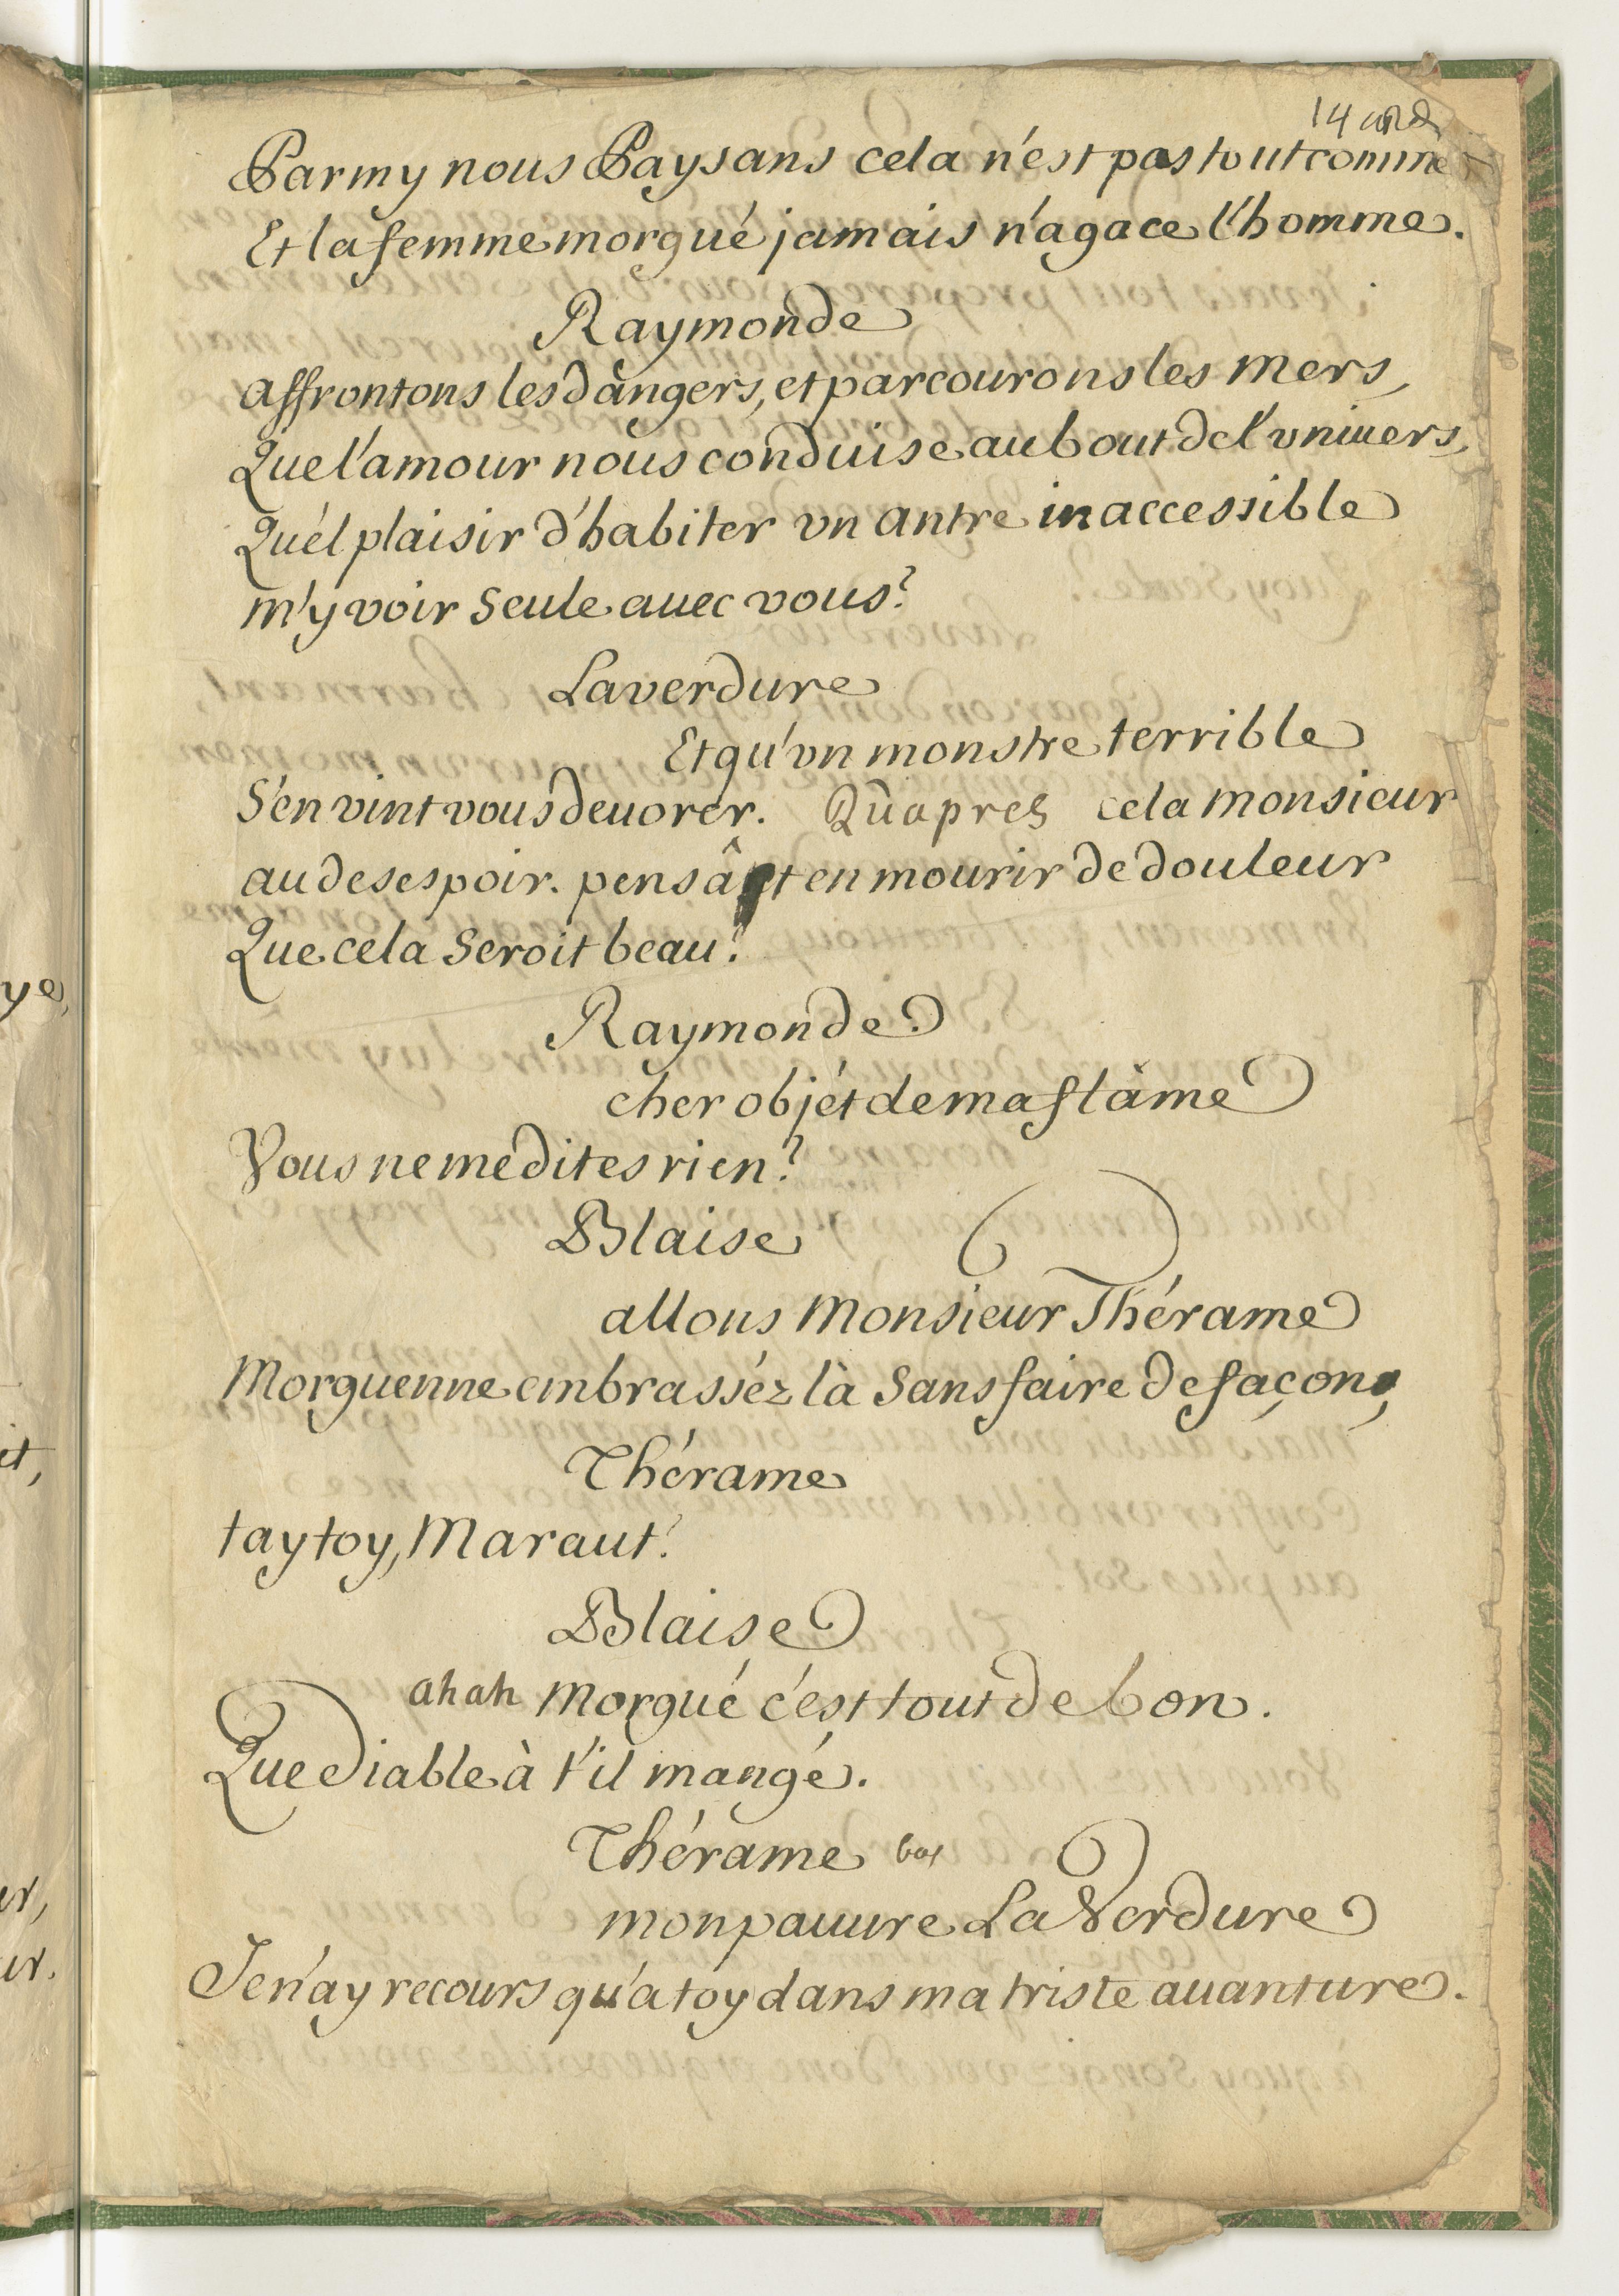 14
Parmy nous Paysans cela n'est pas tout comme
Et la femme morgué jamais n'agace l'homme.
Raymonde
affrontons les dangers, et parcourons les mers,
Que l'amour nous conduise au bout de l'vniuers,
Qu'él plaisir d'habiter vn antre inaccessible
m'y voir seule auec vous?
Laverdure
Et qu'vn monstre terrible
S'en vint vous deuorer. Qu'apres cela monsieur
au desespoir. pensât en mourir de douleur
Que cela seroit beau!
Raymonde.
cher objét de ma flâme
Vous ne me dites rien?
Blaise
allons Monsieur Thérame
Morguenne embrasséz là sans faire de façon,
Thérame
tay toy, Maraut!
Blaise
ah ah morgué c'est tout de bon.
Que diable à t'il mangé.
Thérame bas
mon pauure La Verdure
Je n'ay recours qu'a toy dans ma triste auanture.